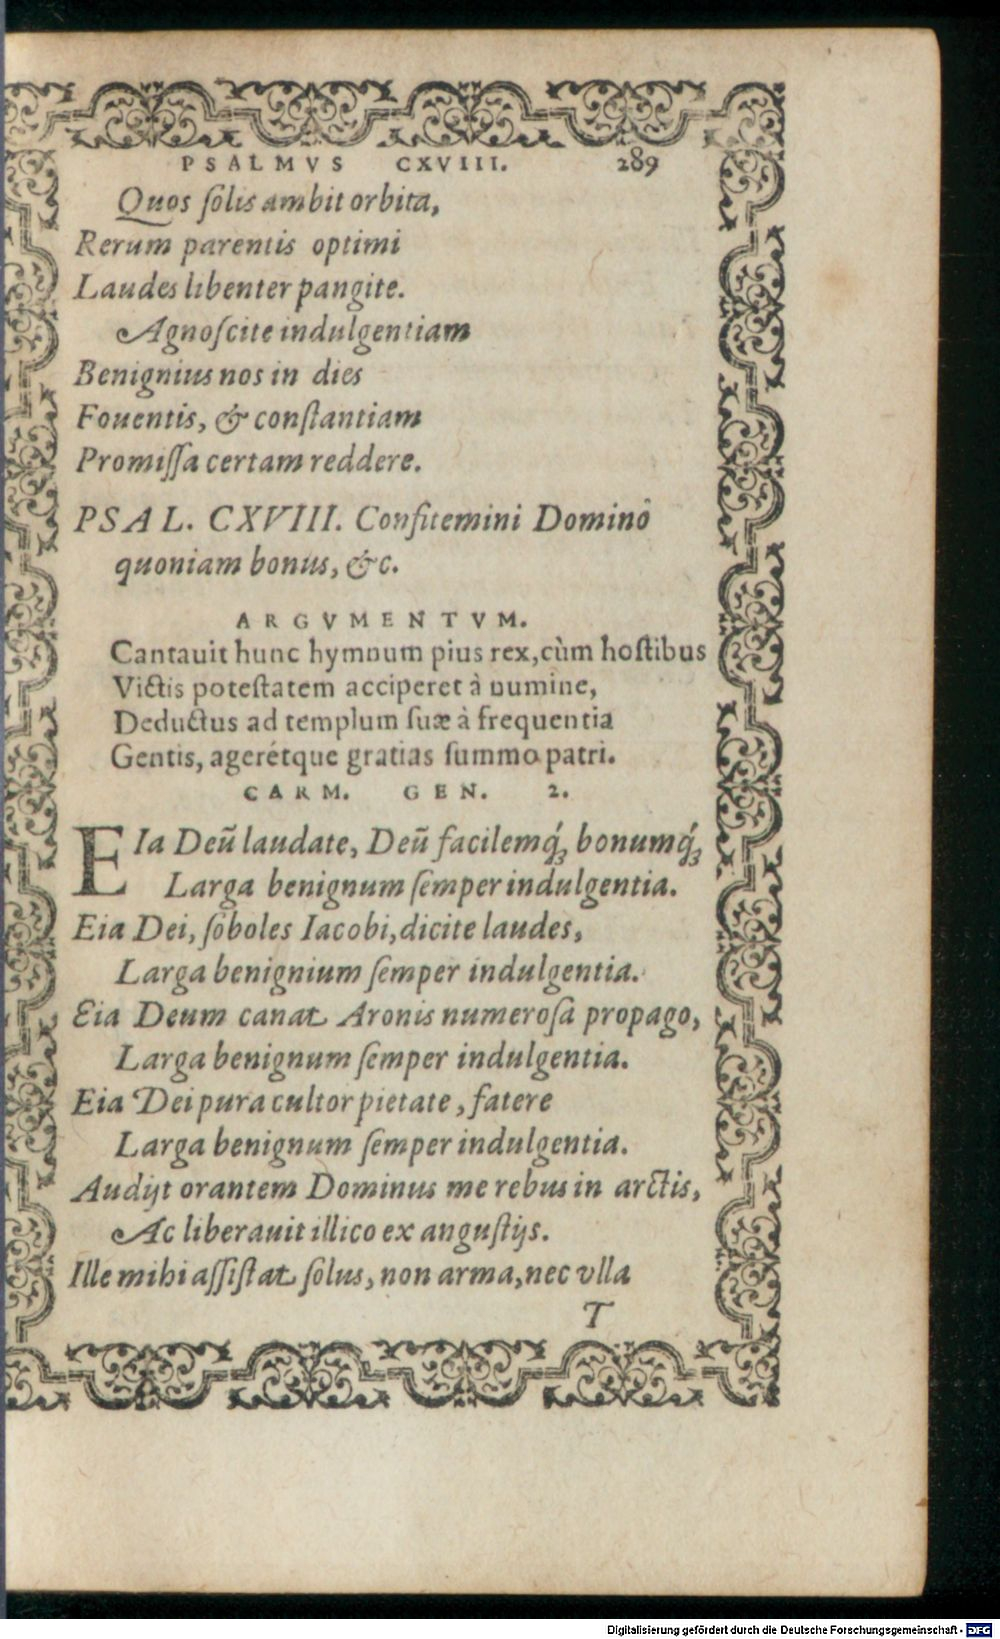 PSALMVS CXVIII. 289
Quos ſolis ambit orbita,
Rerum parentis optimi
Laudes libenter pangite.
Agnoſcite indulgentiam
Benignius nos in dies
Fouentis, & conſtantiam
Promiſſa certam reddere.
PSAL. CXVIII. Confitemini Dominô
quoniam bonus, &c.
ARGVMENTVM.
Cantauit hunc hymnum pius rex, cùm hoſtibus
Victis poteſtatem acciperet à numine,
Deductus ad templum ſuæ à frequentia
Gentis, agerétque gratias ſummo patri.
CARM. GEN. 2.
EIa Deũ laudate, Deũ facilemq́; bonumq́;
Larga benignum ſemper indulgentia.
Eia Dei, ſoboles Iacobi, dicite laudes,
Larga benignium ſemper indulgentia.
Eia Deum canat Aronis numeroſa propago,
Larga benignum ſemper indulgentia.
Eia Dei pura cultor pietate, fatere
Larga benignum ſemper indulgentia.
Audijt orantem Dominus me rebus in arctis,
Ac liberauit illico ex anguſtijs.
Ille mihi aſſiſtat ſolus, non arma, nec vlla
T
Digitalisierung gefördert durch die Deutsche Forschungsgemeinschaft - DFG